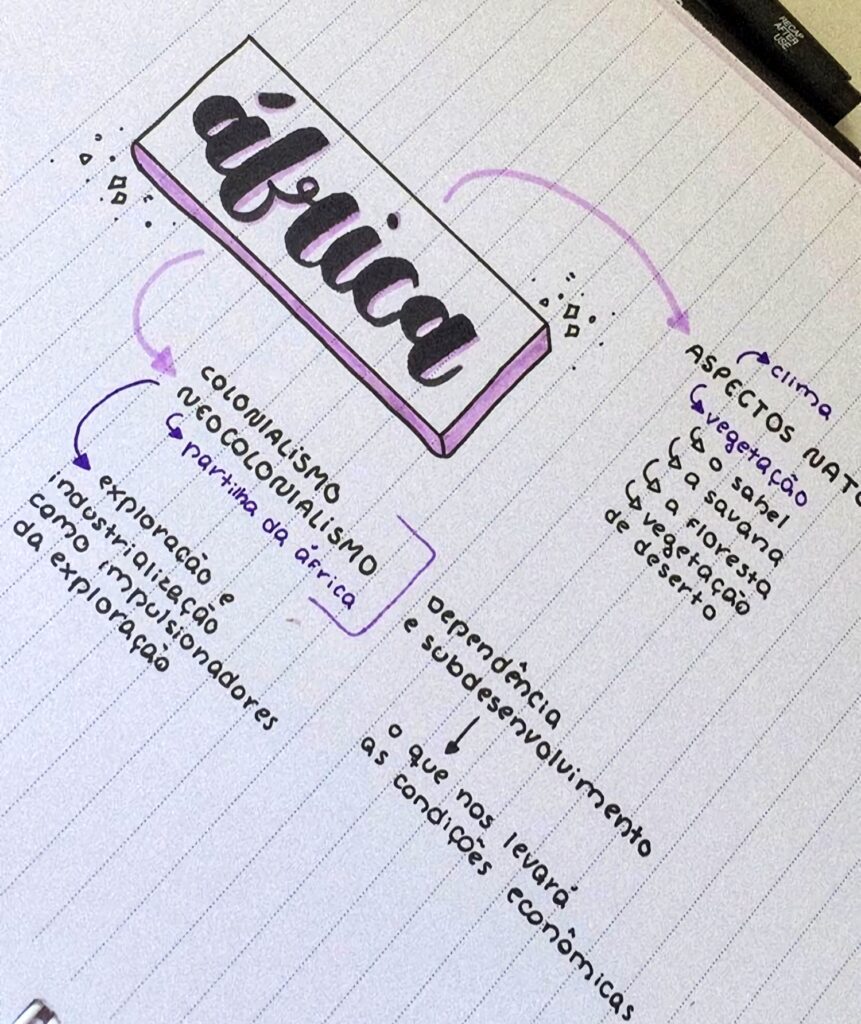 RECAP
AFTER
USE
áfrica
COLONIALISMO
NEOCOLONIALISMO
partilha da áfrica
exploração e
industrialização
como impulsionadores
da exploração
Dependência
e subdesenvolvimento
o que nos levará
as condições econômicas
clima
ASPECTOS NAT
vegetação
o sahel
a savana
a floresta
vegetação
de deserto